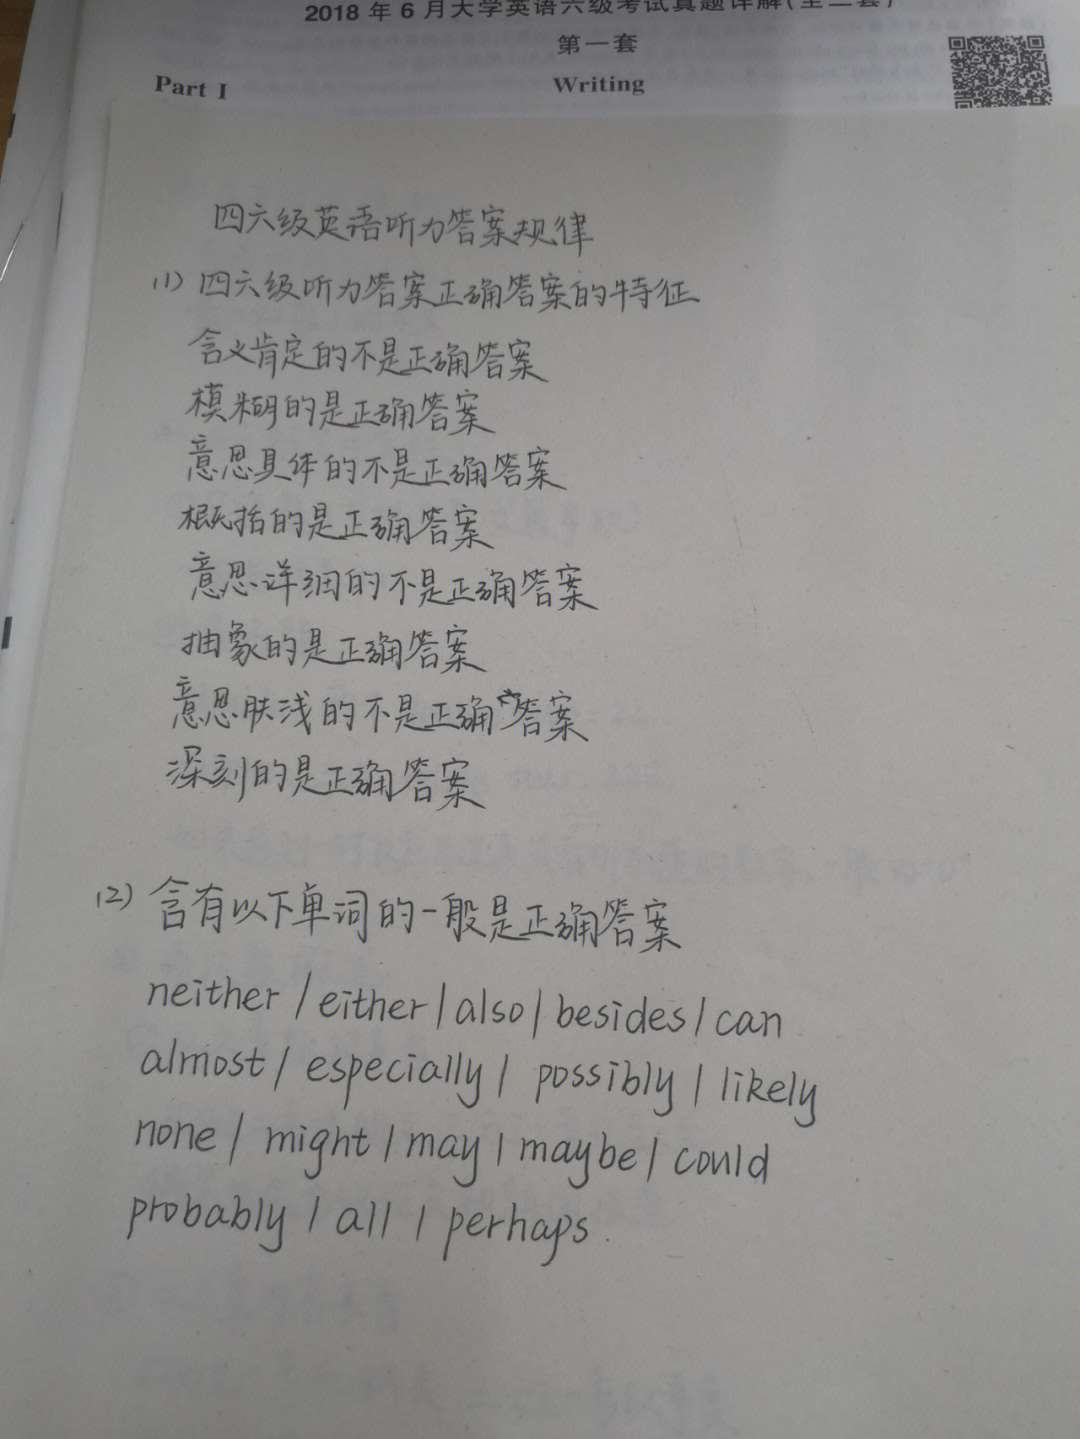 2018 年 6 月大学英语六级考试真题详解(全三套)
第一套
Part I
Writing
四六级英语听力答案规律
(1) 四六级听力答案正确答案的特征
含义肯定的不是正确答案
模糊的是正确答案
意思具体的不是正确答案
概括的是正确答案
意思详细的不是正确答案
抽象的是正确答案
意思肤浅的不是正确答案
深刻的是正确答案
(2) 含有以下单词的一般是正确答案
neither / either / also / besides / can
almost / especially / possibly / likely
none / might / may / maybe / could
probably / all / perhaps.